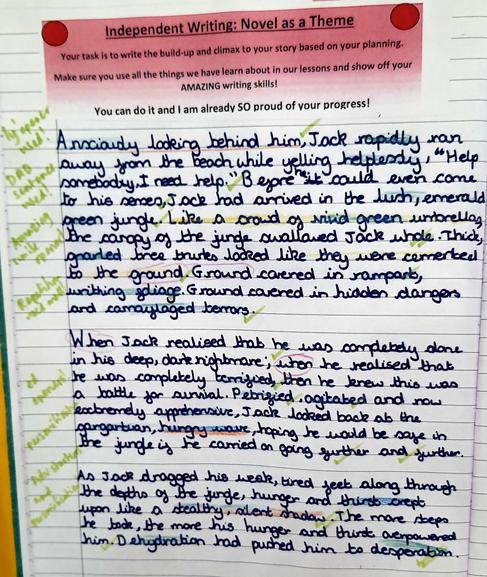 Independent Writing: Novel as a Theme
Your task is to write the build-up and climax to your story based on your planning.
Make sure you use all the things we have learn about in our lessons and show off your
AMAZING writing skills!
You can do it and I am already SO proud of your progress!
Anxiously looking behind him, Jack rapidly ran
away from the beach while yelling helplessly, "Help
somebody, I need help." Before it could even come
to his senses, Jack had arrived in the lush, emerald
green jungle. Like a crowd of vivid green umbrellas,
the canopy of the jungle swallowed Jack whole. Thick,
gnarled tree trunks looked like they were cemented
to the ground. Ground covered in rampant,
writhing foliage. Ground covered in hidden dangers
and camouflaged terrors.
When Jack realised that he was completely alone
in his deep, dark nightmare; when he realised that
he was completely terrified, then he knew this was
a battle for survival. Petrified, agitated and now
extremely apprehensive, Jack looked back at the
gargantuan, hungry wave, hoping he would be safe in
the jungle is he carried on going further and further.
As Jack dragged his weak, tired feet along through
the depths of the jungle, hunger and thirst crept
upon like a stealthy, silent shadow. The more steps
he took, the more his hunger and thirst overpowered
him. Dehydration had pushed him to desperation.